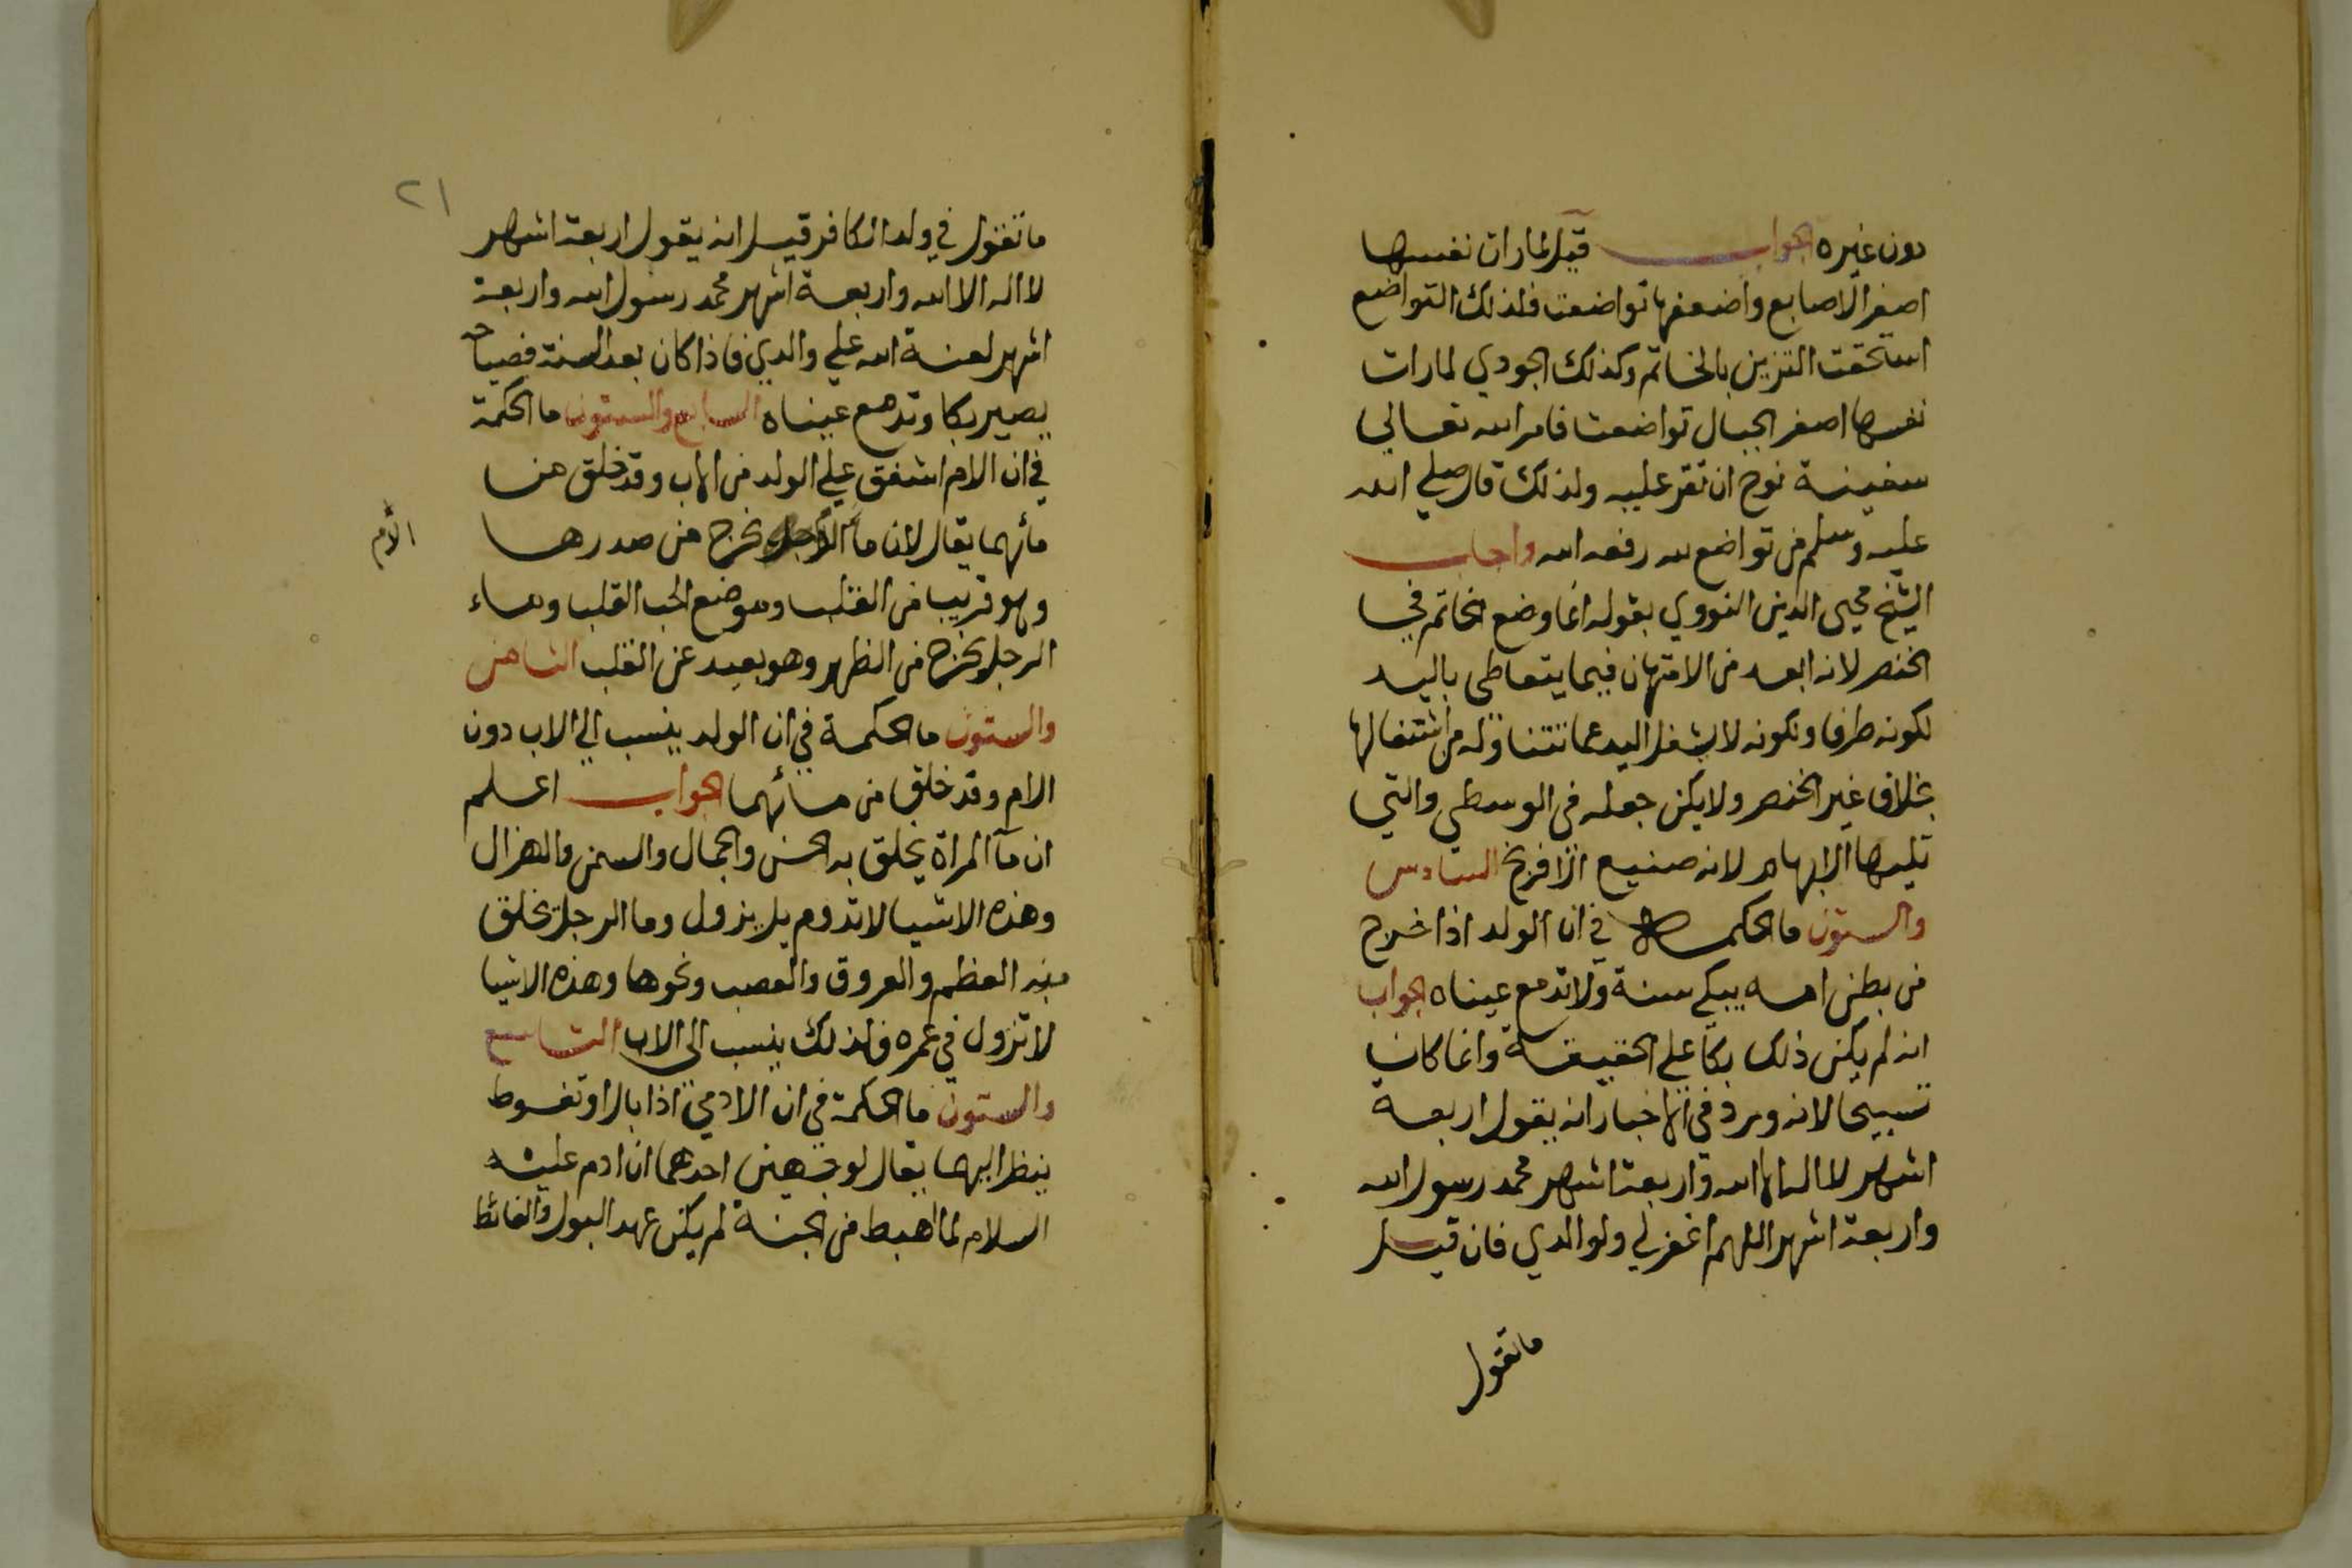 دون غيره الجواب قيل لما رات نفسها
اصغر الاصابع واضعفها تواضعت فلذلك التواضع
استحقت التزين بالخاتم وكذلك الجودي لما رات
نفسها اصغر الجبال تواضعت فامر الله تعالي
سفينة نوح ان تقر عليه ولذلك قال صلي الله
عليه وسلم من تواضع لله رفعه الله واجاب
الشيخ محيى الدين النووي بقوله انما وضع الخاتم في
الخنصر لانه ابعد من الامتهان فيما يتعاطى باليد
لكونه طرفا ولكونه لا يشغل اليد عما تتناوله من اشتغالها
بخلاف غير الخنصر ولا يكن جعله في الوسطي والتي
تليها الابهام لانه صنيع الافرنج السادس
والستون ما الحكمة في ان الولد اذا خرج
من بطن امه يبكي سنة ولا تدمع عيناه الجواب
انه لم يكن ذلك بكا علي الحقيقة وانما كان
تسبيحا لانه ورد في الاخبار انه يقول اربعة
اشهر لا اله الا الله واربعة اشهر محمد رسول الله
واربعة اشهر اللهم اغفر لي ولوالدي فان قيل
ما تقول
٢١
ما تقول في ولد الكافر قيل انه يقول اربعة اشهر
لا اله الا الله واربعة اشهر محمد رسول الله واربعة
اشهر لعنة الله علي والدي فاذا كان بعد السنة فصياحه
يصير بكا وتدمع عيناه السابع والستون ما الحكمة
في ان الام اشفق علي الولد من الاب وقد خلق من
مائهما يقال لان ما يخرج من صدرها
الام
وهو قريب من القلب وموضع الحب القلب وماء
الرجل يخرج من الظهر وهو بعيد عن القلب الثامن
والستون ما الحكمة في ان الولد ينسب الي الاب دون
الام وقد خلق من مائهما الجواب اعلم
ان مآ المراة يخلق به الحسن والجمال والسمن والهزال
وهذه الاشيا لا تدوم بل يزول وما الرجل يخلق
منه العظم والعروق والعصب ونحوها وهذه الاشيا
لا تزول في عمره فلذلك ينسب الى الاب التاسع
والستون ما الحكمة في ان الادمي اذا بال او تغوط
ينظر اليهما يقال لوجهين احدهما ان ادم عليه
السلام لما اهبط من الجنة لم يكن عهد البول والغائط